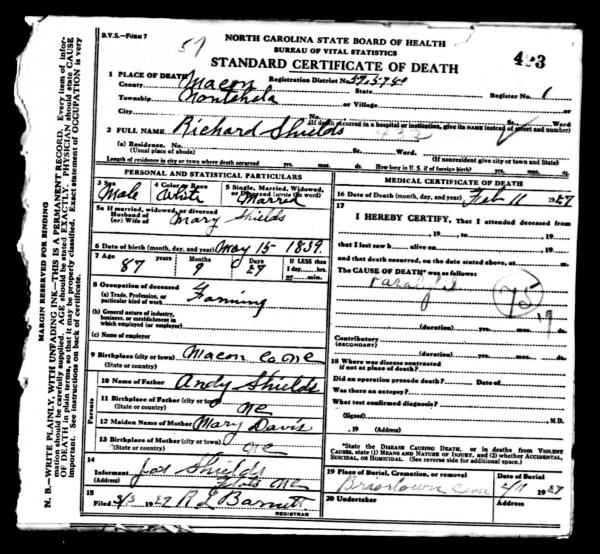 B.V.S.—FORM 7
57
NORTH CAROLINA STATE BOARD OF HEALTH
BUREAU OF VITAL STATISTICS
STANDARD CERTIFICATE OF DEATH
1 PLACE OF DEATH
County Macon
Registration District No.
State
Register No. 1
Township Nantehela
or Village
City No. St. Ward
(If death occurred in a hospital or institution, give its NAME instead of street and number)
2 FULL NAME Richard Shields
(a) Residence. No. St. Ward.
(Usual place of abode)
(If nonresident give city or town and State)
Length of residence in city or town where death occurred yrs. mos. ds. How long in U. S. if of foreign birth? yrs. mos. ds.
PERSONAL AND STATISTICAL PARTICULARS
3 Sex Male
4 Color or Race White
5 Single, Married, Widowed, or Divorced (write the word) Married
5a If married, widowed, or divorced
Husband of
(or) Wife of Mary Shields
6 Date of birth (month, day, and year) May 15 1839
7 Age 87 years Months 9 Days 27
If LESS than 1 day, hrs. or min.
8 Occupation of deceased
(a) Trade, Profession, or particular kind of work Farming
(b) General nature of industry, business, or establishment in which employed (or employer)
(c) Name of employer
9 Birthplace (city or town) Macon Co NC
(State or country)
Parents
10 Name of Father Andy Shields
11 Birthplace of Father (city or town)
(State or country) NC
12 Maiden Name of Mother Mary Davis
13 Birthplace of Mother (city or town)
(State or country) NC
14
Informant Joe Shields
(Address) NC
15
Filed 3/3 1927 R L Barnett
REGISTRAR
MEDICAL CERTIFICATE OF DEATH
16 Date of Death (month, day, and year) Feb 11 1927
17
I HEREBY CERTIFY, That I attended deceased from
, 19 , to , 19
that I last saw h alive on , 19
and that death occurred, on the date stated above, at m.
The CAUSE OF DEATH* was as follows:
75
(duration) yrs. mos. ds.
Contributory
(SECONDARY)
(duration) yrs. mos. ds.
18 Where was disease contracted
if not at place of death?
Did an operation precede death? Date of
Was there an autopsy?
What test confirmed diagnosis?
(Signed) , M.D.
, 19 (Address)
*State the DISEASE CAUSING DEATH, or in deaths from VIOLENT CAUSES, state (1) MEANS AND NATURE OF INJURY, and (2) whether ACCIDENTAL, SUICIDAL, or HOMICIDAL. (See reverse side for additional space.)
19 Place of Burial, Cremation, or removal
Date of Burial
Briartown Cem
2/11 1927
20 Undertaker
Address
MARGIN RESERVED FOR BINDING
N. B.—WRITE PLAINLY, WITH UNFADING INK—THIS IS A PERMANENT RECORD. Every item of information should be carefully supplied. AGE should be stated EXACTLY. PHYSICIAN should state CAUSE OF DEATH in plain terms, so that it may be properly classified. Exact statement of OCCUPATION is very important. See instructions on back of certificate.